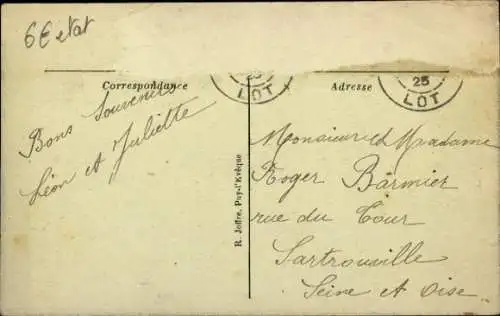 6€ etat
Correspondance
Adresse
25
LOT
25
LOT
Bons Souvenirs
Léon et Juliette
R. Joffre, Puy-l'Evêque
Monsieur et Madame
Roger Barmier
rue du Tour
Sartrouville
Seine et Oise